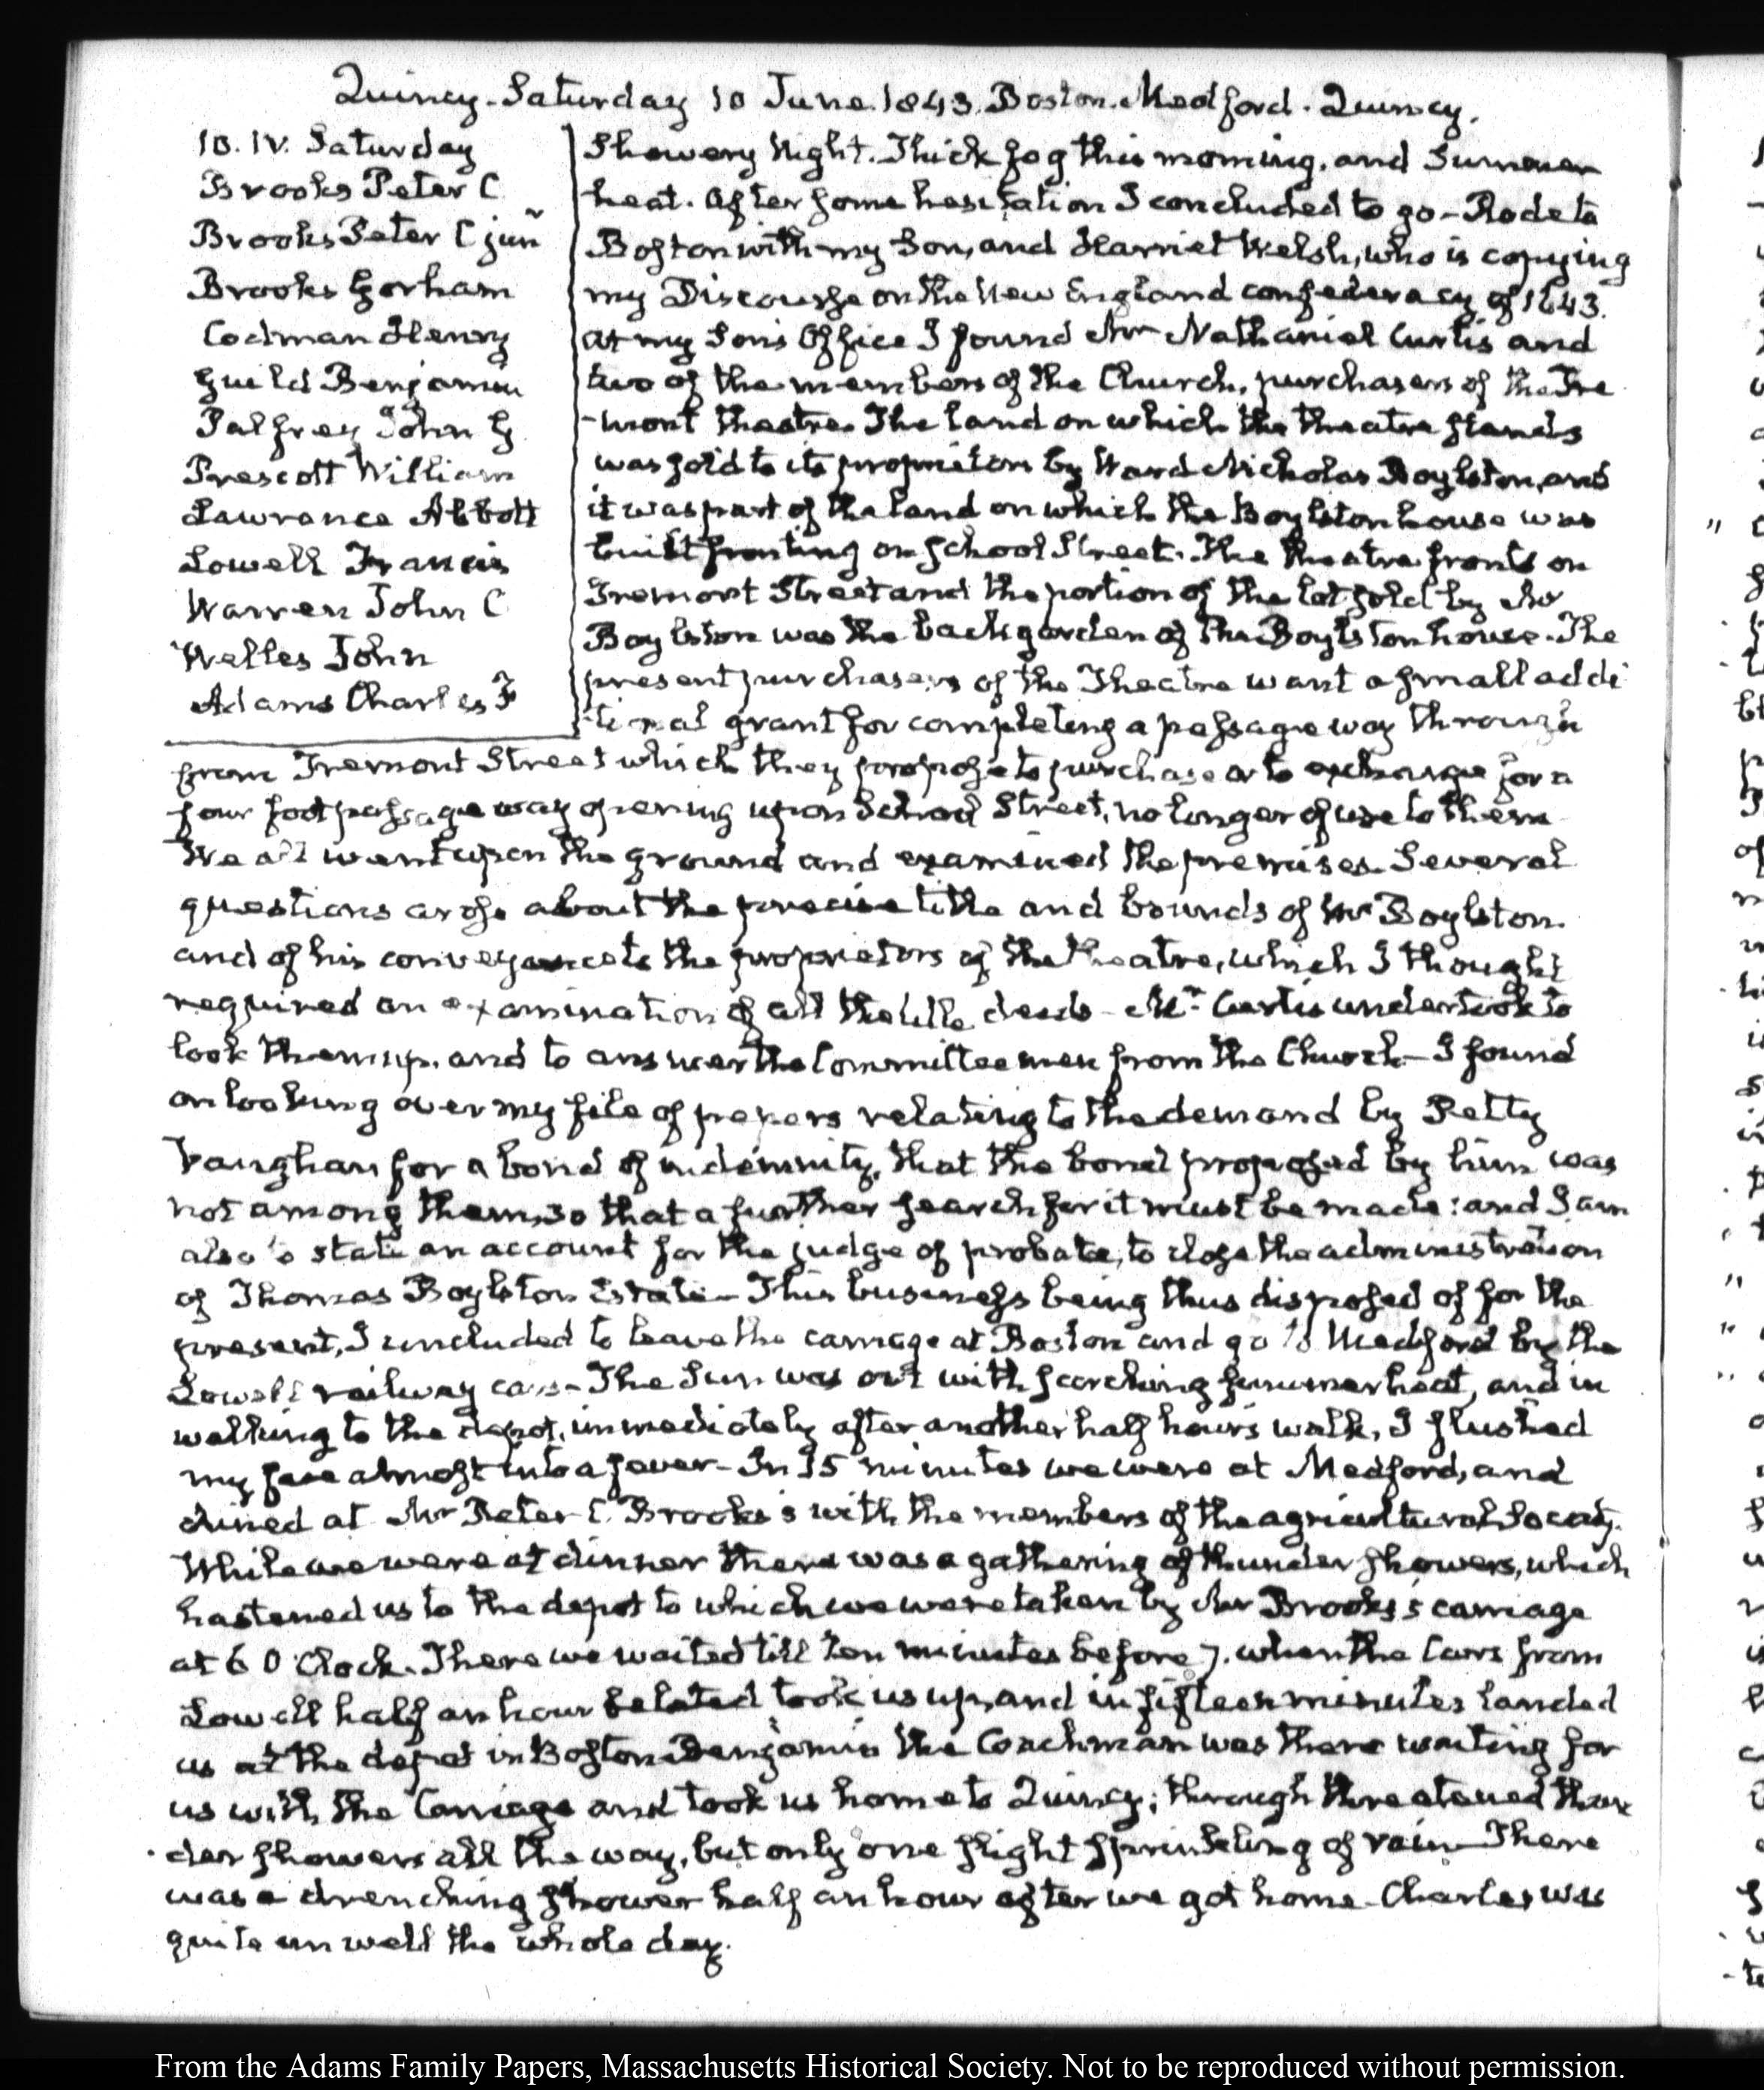 Quincy. Saturday 10 June. 1843. Boston. Medford. Quincy.
10. IV. Saturday
Brooks Peter C
Brooks Peter C junr
Brooks Gorham
Codman Henry
Guild Benjamin
Palfrey John G
Prescott William
Lawrance Abbott
Lowell Francis
Warren John C
Welles John
Adams Charles F
Showery Night. Thick fog this morning, and Summer
heat. After some hesitation I concluded to go – Rode to
Boston with my Son, and Harriet Welsh, who is copying
my Discourse on the New England confederacy of 1643.
at my Son's Office I found Mr Nathaniel Curtis and
two of the members of the Church, purchasers of the Tre
-mont theatre. The land on which the theatre stands
was sold to its proprietors by Ward Nicholas Boylston, and
it was part of the land on which the Boylston house was
built fronting on School Street. The theatre fronts on
Tremont Street and the portion of the lot sold by Mr
Boylston was the back garden of the Boylston house. The
present purchasers of the Theatre want a small addi
-tional grant for completing a passage way through
from Tremont Street which they propose to purchase or to exchange for a
four foot passage way opening upon School Street, no longer of use to them
We all went upon the ground and examined the premises. Several
questions arose about the precise title and bounds of Mr Boylston.
and of his conveyance to the proprietors of the theatre, which I thought
required an examination of all the title deeds – Mr Curtis undertook to
look them up, and to answer the Committee men from the Church – I found
on looking over my file of papers relating to the demand by Petty
Vaughan for a bond of indemnity, that the bond proposed by him was
not among them, so that a further search for it must be made: and I am
also to state an account for the judge of probate, to close the administration
of Thomas Boylston Estate – This business being thus disposed of for the
present, I concluded to leave the carriage at Boston and go to Medford by the
Lowell railway cars – The Sun was out with scorching summer heat, and in
walking to the depot, immediately after another half hour's walk, I flushed
my face almost into a fever – In 15 minutes we were at Medford, and
dined at Mr Peter C. Brooks's with the members of the agricultural Society.
While we were at dinner there was a gathering of thunder showers, which
hastened us to the depot to which we were taken by Mr Brooks's carriage
at 6 O'Clock. There we waited till ten minutes before 7. when the Cars from
Lowell half an hour belated took us up, and in fifteen minutes landed
us at the depot in Boston. Benjamin the Coachman was there waiting for
us with the Carriage and took us home to Quincy; through threatened thun
-der showers all the way, but only one slight sprinkling of rain – There
was a drenching shower half an hour after we got home. Charles was
quite unwell the whole day.
From the Adams Family Papers, Massachusetts Historical Society. Not to be reproduced without permission.